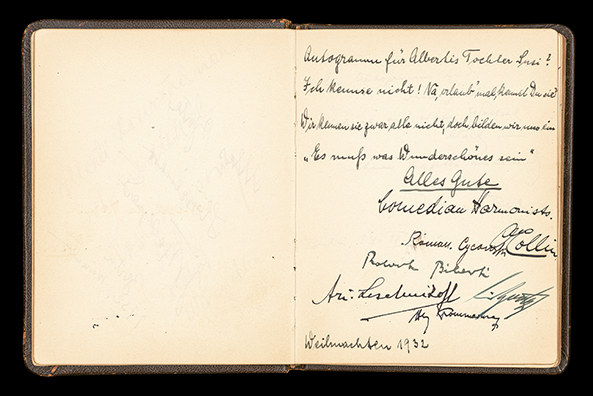 Autogramme für Albertis Tochter Susi?
Ich kenn se nicht! Na, erlaub' mal, kennst Du sie?
Wir kennen sie zwar alle nicht, doch bilden wir uns ein
„Es muß was Wunderschönes sein"
Alles Gute
Comedian Harmonists.
Roman Cycowski Collin
Robert Biberti
Ari Leschnikoff
Weihnachten 1932